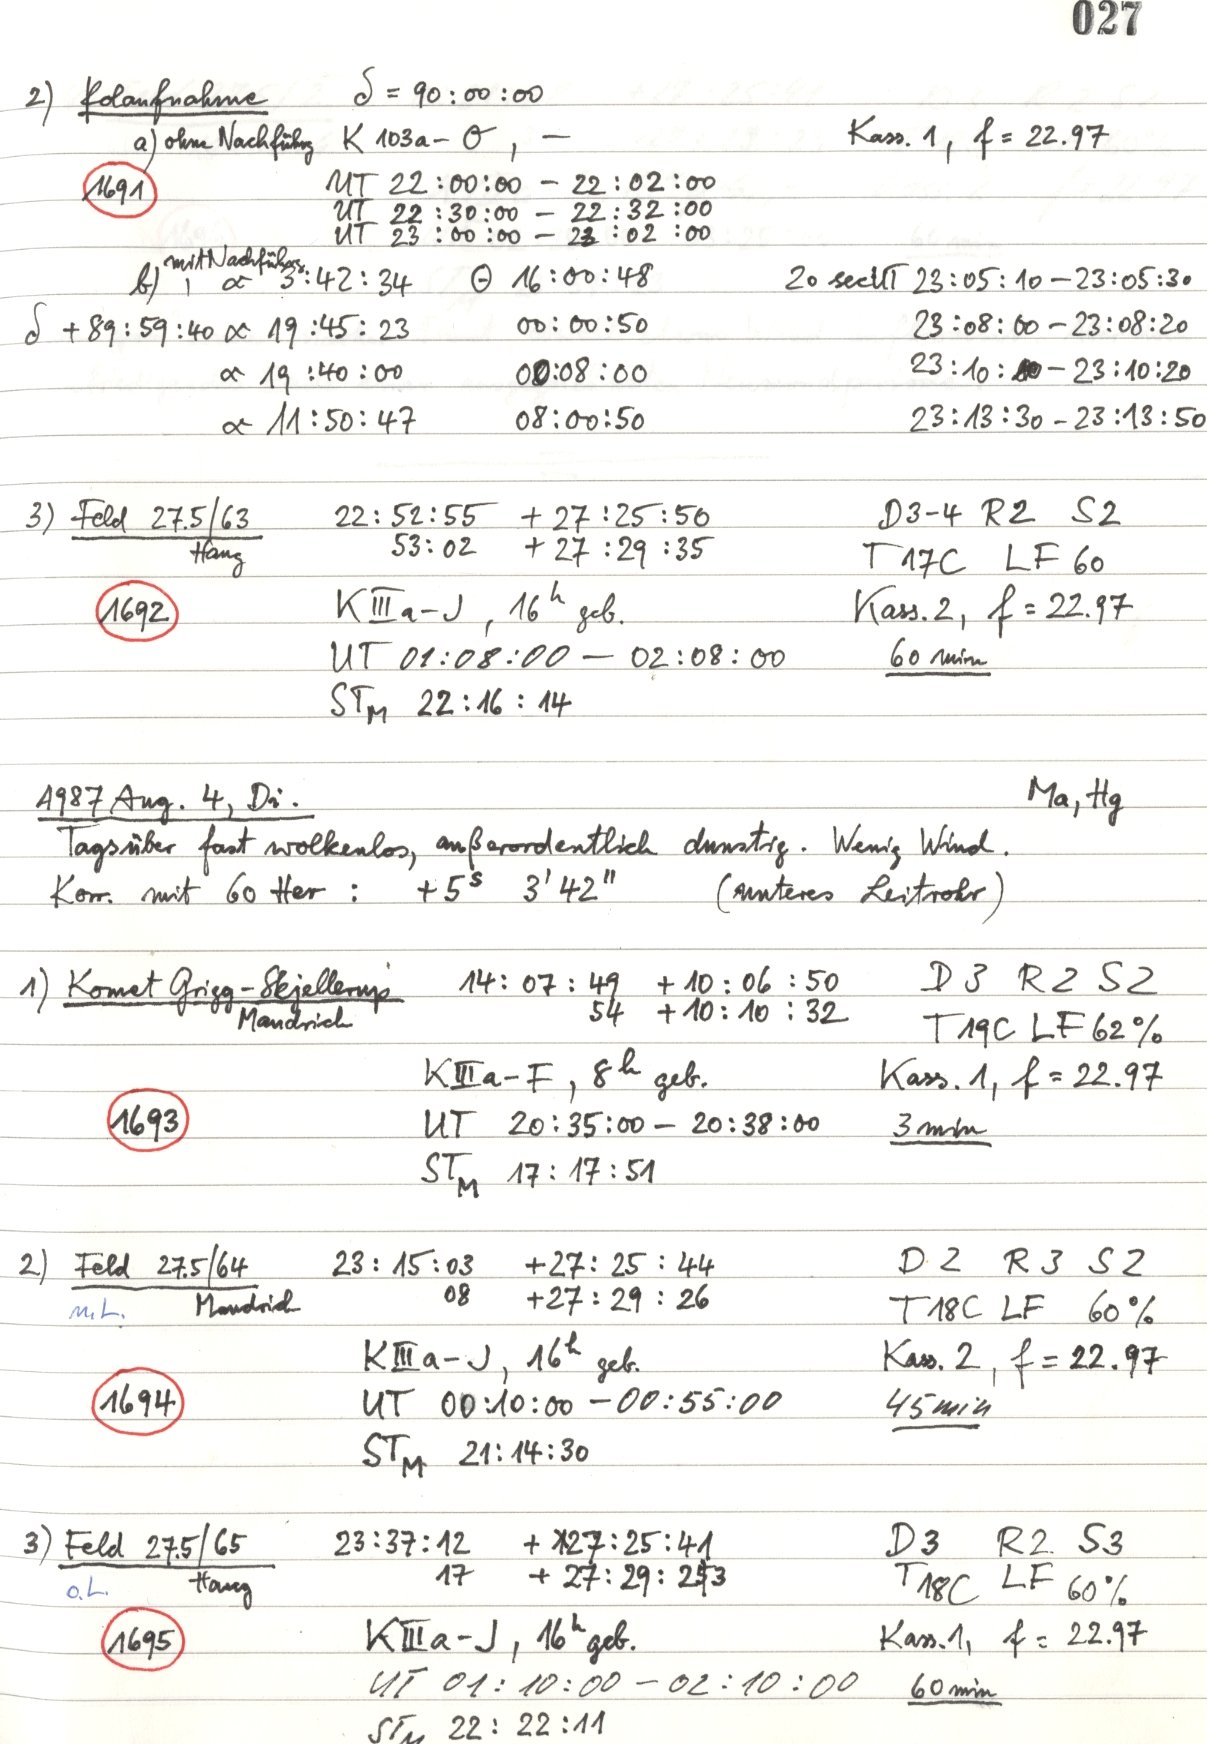 027
2) Polaufnahme δ = 90:00:00
a) ohne Nachführg K 103a-O, — Kass. 1, f = 22.97
1691 UT 22:00:00 - 22:02:00
UT 22:30:00 - 22:32:00
UT 23:00:00 - 23:02:00
mit Nachführg.
b) , α 3:42:34 Θ 16:00:48 20 sec UT 23:05:10-23:05:30
δ +89:59:40 α 19:45:23 00:00:50 23:08:00-23:08:20
α 19:40:00 00:08:00 23:10:00-23:10:20
α 11:50:47 08:00:50 23:13:30-23:13:50
3) Feld 27.5/63 22:52:55 +27:25:50 D3-4 R2 S2
Haug 53:02 +27:29:35 T17C LF 60
1692 K IIIa-J, 16h geb. Kass. 2, f = 22.97
UT 01:08:00 - 02:08:00 60 min
STM 22:16:14
1987 Aug. 4, Di. Ma, Hg
Tagsüber fast wolkenlos, außerordentlich dunstig. Wenig Wind.
Korr. mit 60 Her: +5s 3'42" (unteres Leitrohr)
1) Komet Grigg-Skjellerup 14:07:49 +10:06:50 D3 R2 S2
Mandrich 54 +10:10:32 T19C LF 62%
K IIa-F, 8h geb. Kass. 1, f = 22.97
1693 UT 20:35:00 - 20:38:00 3 min
STM 17:17:51
2) Feld 27.5/64 23:15:03 +27:25:44 D2 R3 S2
m.L. Mandrich 08 +27:29:26 T18C LF 60%
K IIIa-J, 16h geb. Kass. 2, f = 22.97
1694 UT 00:10:00 - 00:55:00 45 min
STM 21:14:30
3) Feld 27.5/65 23:37:12 +27:25:41 D3 R2 S3
o.L. Haug 17 +27:29:23 T18C LF 60%
1695 K IIIa-J, 16h geb. Kass. 1, f = 22.97
UT 01:10:00 - 02:10:00 60 min
STM 22:22:11